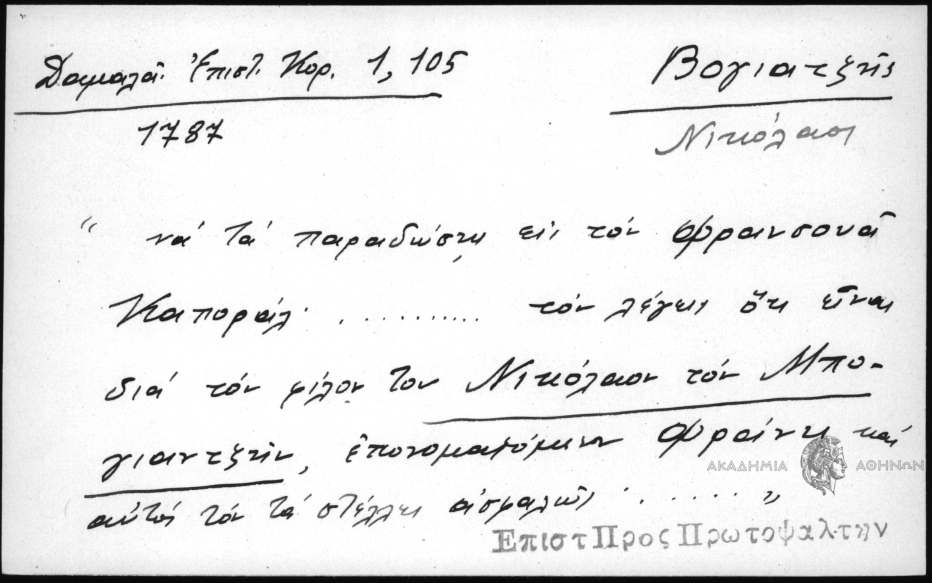 Δαμαλᾶ. Ἐπιστ. Κορ. 1, 105
Βογιατζῆς
1787
Νικόλαος
“ νά τά παραδώσῃ εἰς τόν Φρανσουᾶ
Καποράλ . . . . . . . . . . τόν λέγεις ὅτι εἶναι
διά τόν φίλον του Νικόλαον τόν Μπο-
γιαντζῆν, ἐπονομαζόμενον Φράγκη καί
αὐτός τόν τά στέλλει ἀσφαλῶς . . . . . . . „
ΑΚΑΔΗΜΙΑ ΑΘΗΝΩΝ
Επιστ Προς Πρωτοψαλτην